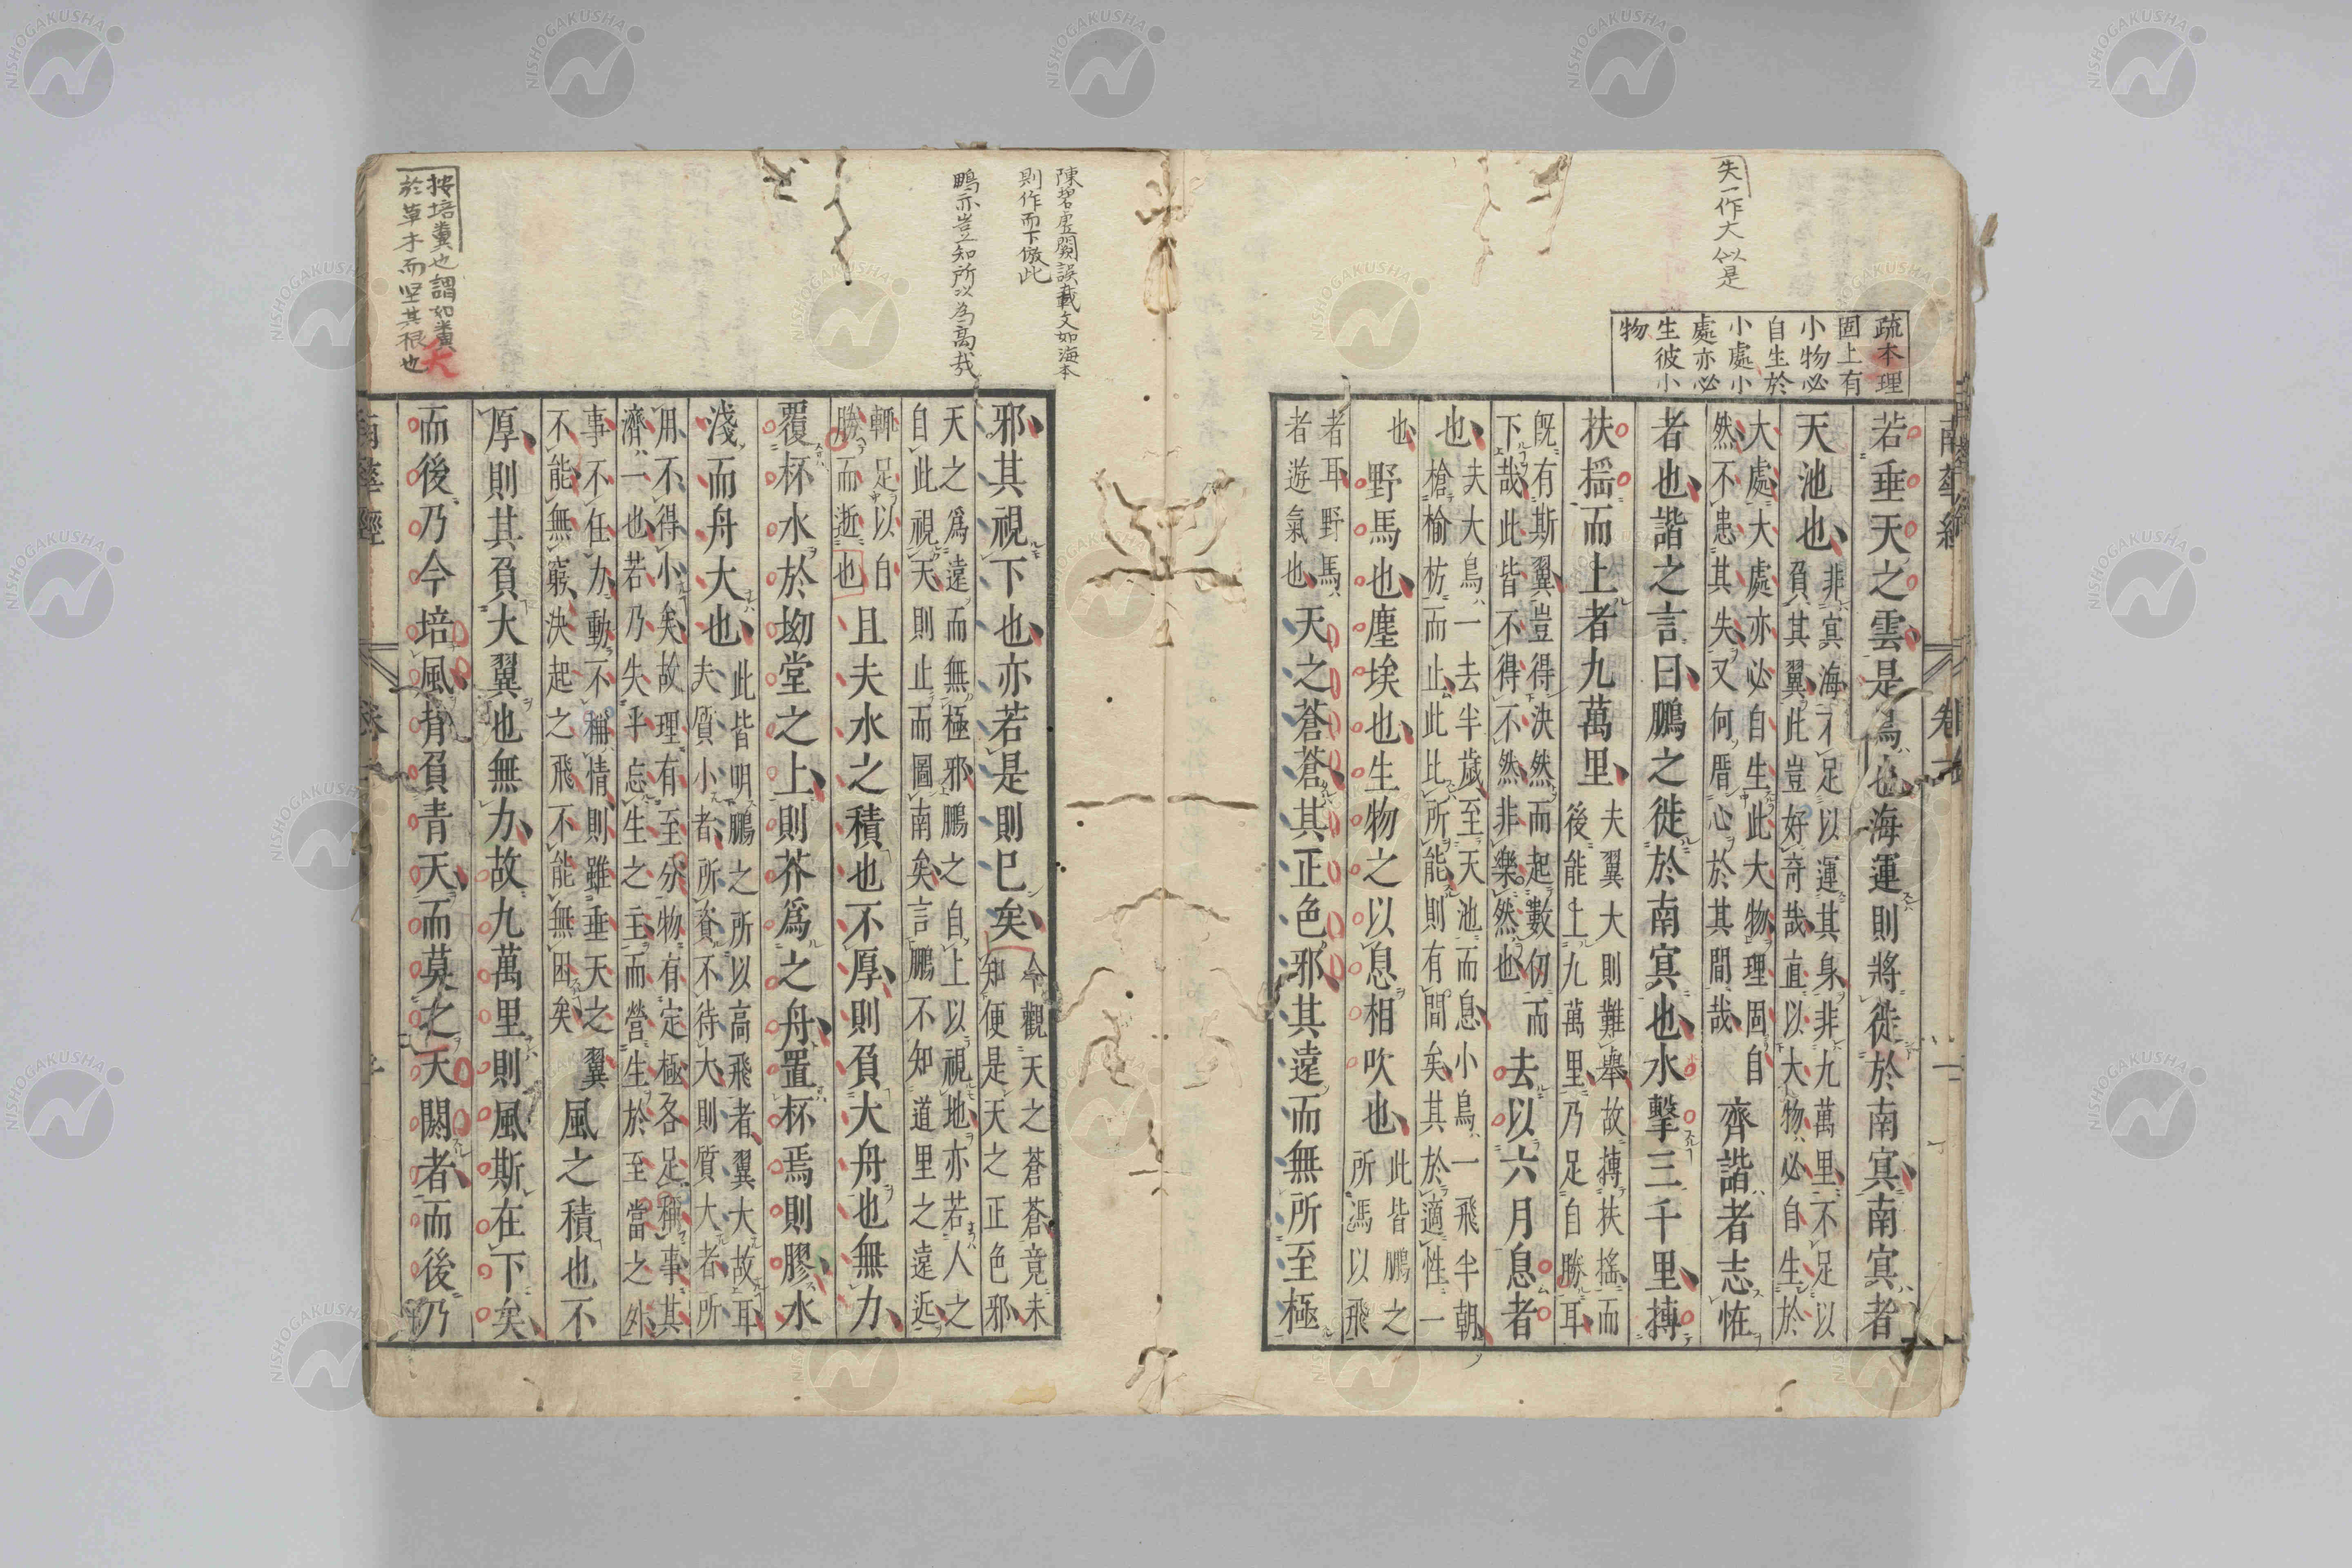 失一作大似是
疏本理
固上有
小物必
自生於
小處小
處亦必
生彼小
物
南華經
卷一
若垂天之雲是鳥也海運則將徙於南冥南冥者
天池也
非冥海不足以運其身非九萬里不足以
負其翼此豈好奇哉直以大物必自生於
大處大處亦必自生此大物理固自
然不患其失又何厝心於其間哉
齊諧者志恠
者也諧之言曰鵬之徙於南冥也水擊三千里摶
扶揺而上者九萬里
夫翼大則難舉故摶扶搖而
後能上九萬里乃足自勝耳
既有斯翼豈得決然而起數仞而
下哉此皆不得不然非樂然也
去以六月息者
也
夫大鳥一去半歲至天池而息小鳥一飛半朝
槍榆枋而止此比所能則有間矣其於適性一
也
野馬也塵埃也生物之以息相吹也
此皆鵬之
所馮以飛
者耳野馬
者遊氣也
天之蒼蒼其正色邪其遠而無所至極
陳碧虛闕誤載文如海本
則作而下倣此
鵬亦豈知所以為高哉
按培糞也謂如糞
於草才而坚其根也
邪其視下也亦若是則已矣
今觀天之蒼蒼竟未
知便是天之正色邪
天之爲遠而無極邪鵬之自上以視地亦若人之
自此視天則止而圖南矣言鵬不知道里之遠近
輕足以自
勝而逝也
且夫水之積也不厚則負大舟也無力
覆杯水於坳堂之上則芥爲之舟置杯焉則膠水
淺而舟大也
此皆明鵬之所以高飛者翼大故耳
夫質小者所資不待大則質大者所
用不得小矣故理有至分物有定極各足稱事其
濟一也若乃失乎忘生之主而營生於至當之外
事不任力動不稱情則雖垂天之翼
不能無窮決起之飛不能無困矣
風之積也不
厚則其負大翼也無力故九萬里則風斯在下矣
而後乃今培風背負青天而莫之夭閼者而後乃
南華經